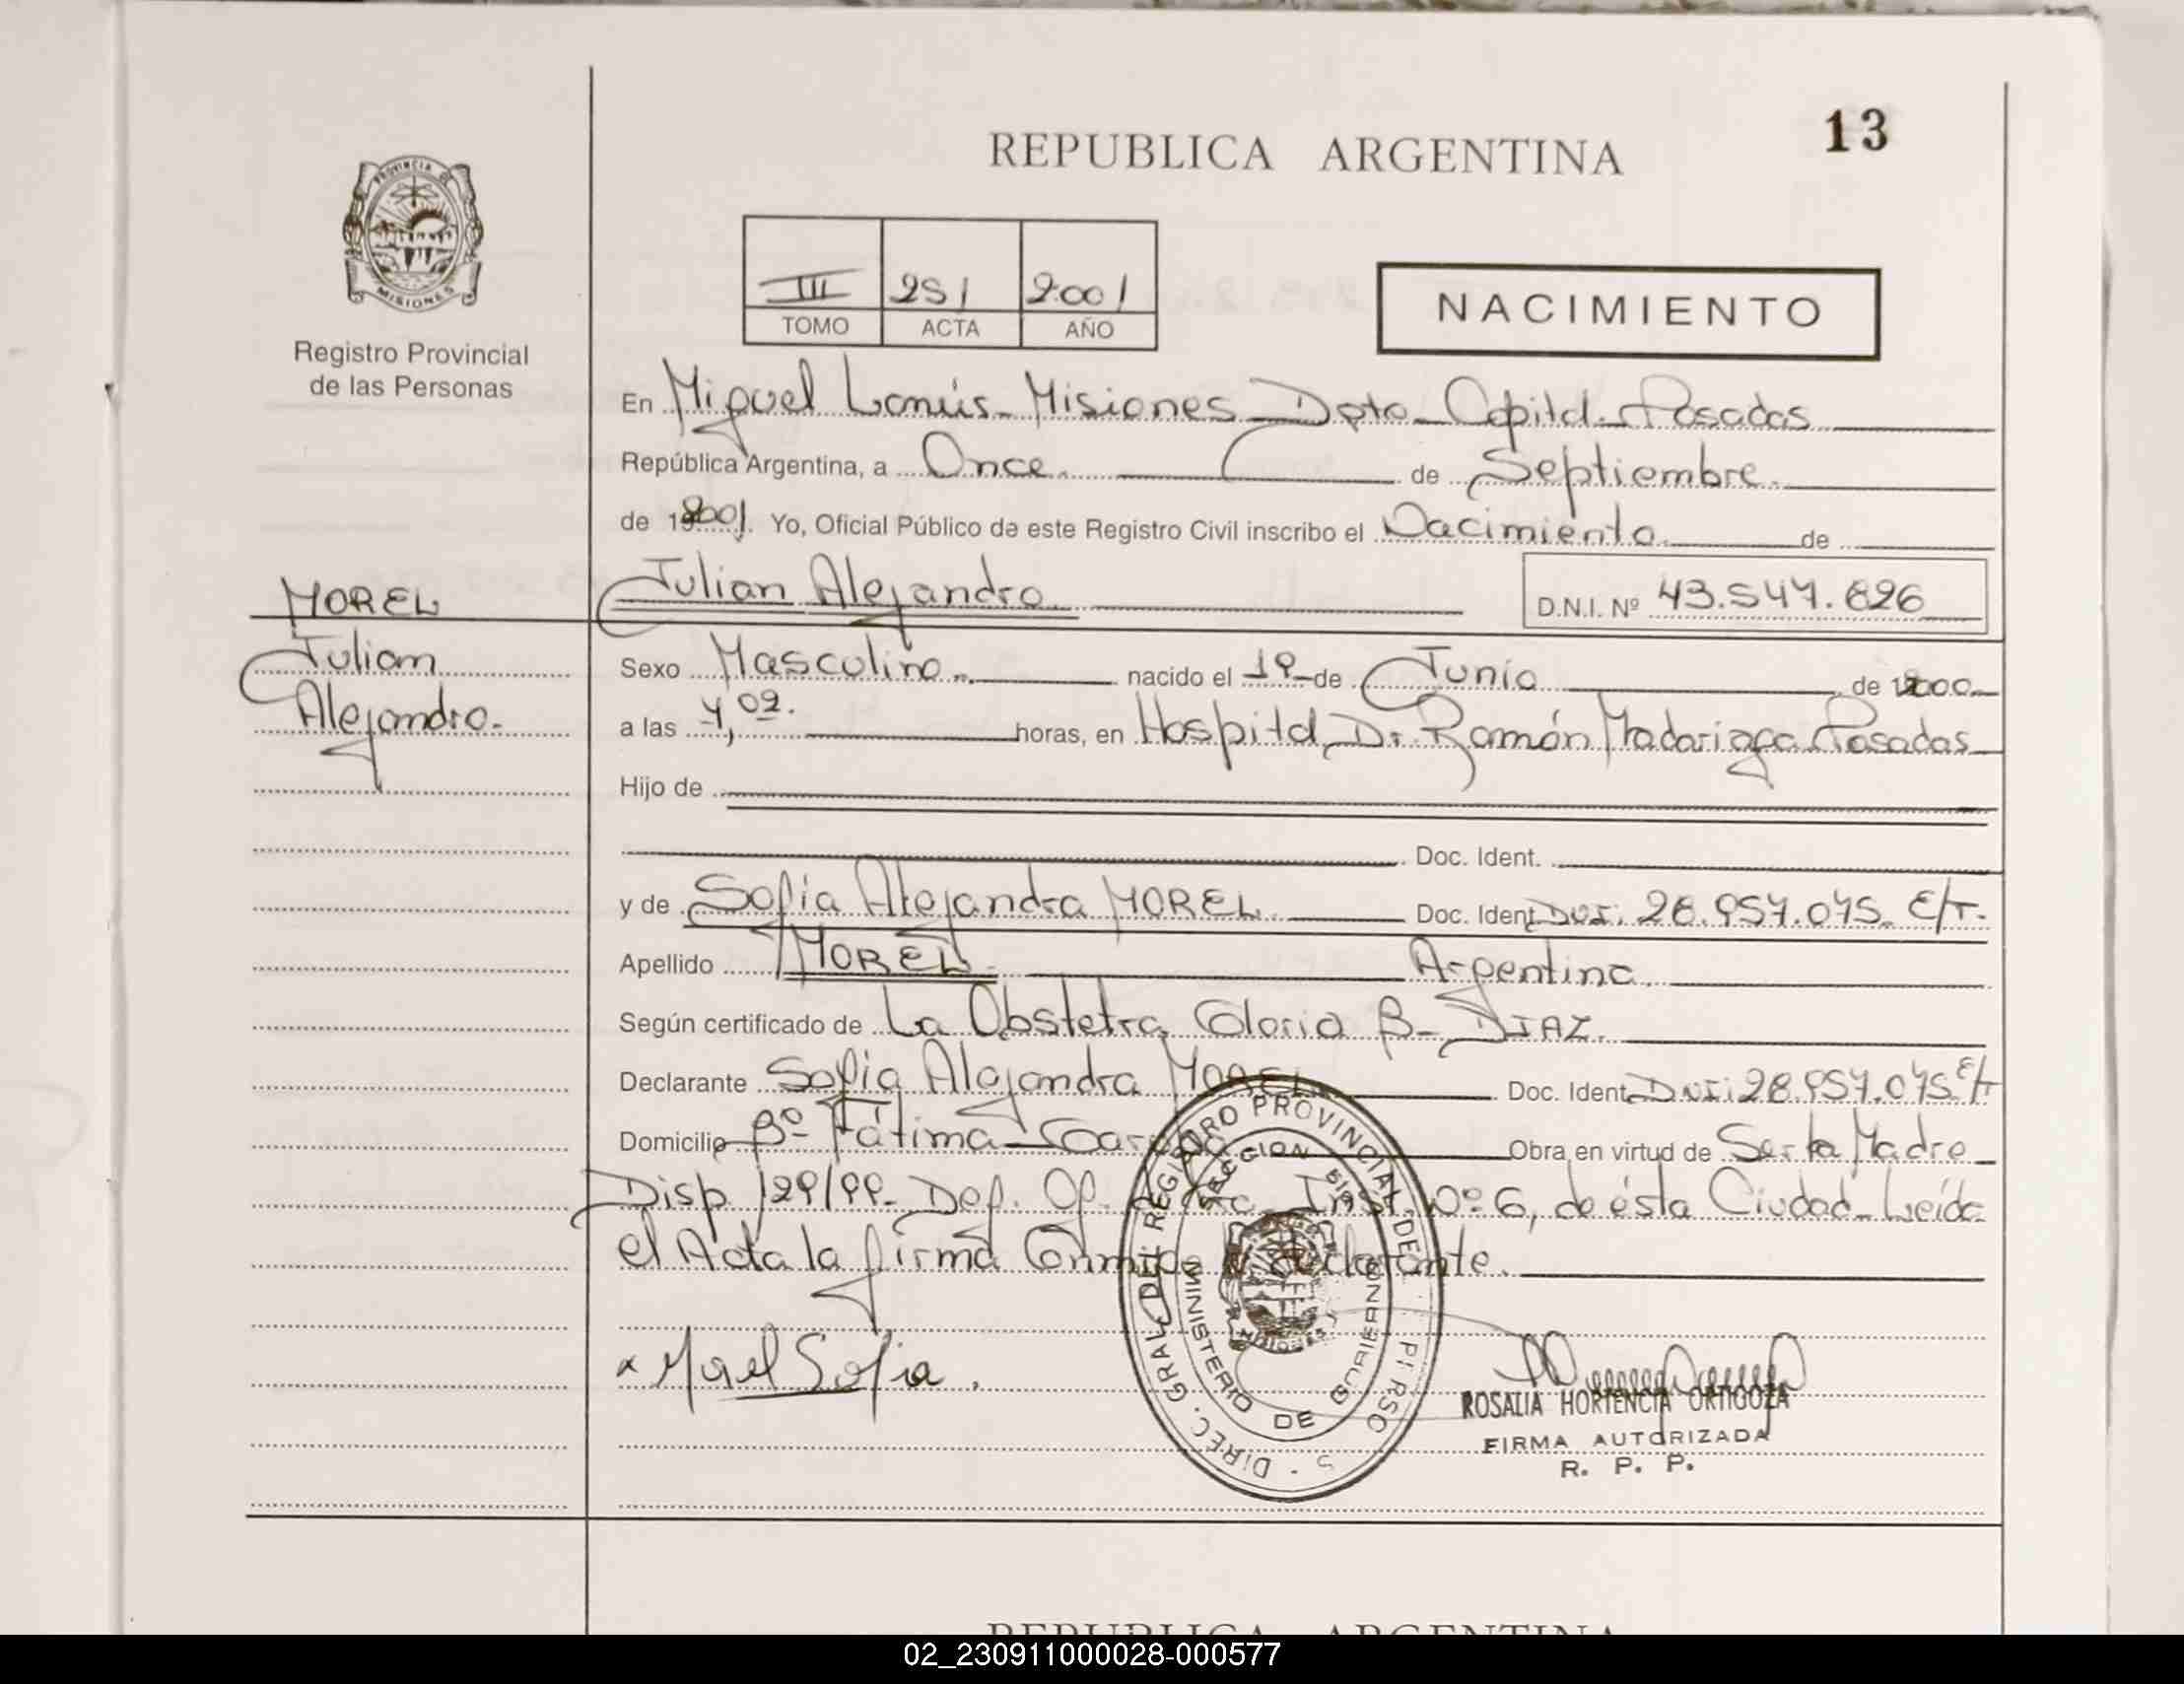 13
REPUBLICA ARGENTINA
PROVINCIA DE
MISIONES
Registro Provincial
de las Personas
III 251 2.001
TOMO ACTA AÑO
NACIMIENTO
En Miguel Lanús - Misiones - Dpto - Capital - Posadas
República Argentina, a Once de Septiembre.
de 2001. Yo, Oficial Público de este Registro Civil inscribo el Nacimiento de
MOREL
Julian Alejandro D.N.I. Nº 43.547.826
Julian
Alejandro.
Sexo Masculino. nacido el 19 de Junio de 2000
a las 4,02. horas, en Hospital Dr. Ramón Madariaga Posadas
Hijo de
Doc. Ident.
y de Sofia Alejandra MOREL Doc. Ident. D.N.I. 28.957.045. E/T.
Apellido MOREL Argentina.
Según certificado de La Obstetra Gloria B. DIAZ.
Declarante Sofia Alejandra MOREL Doc. Ident. D.N.I: 28.957.045 E/T
Domicilio Bº Fátima - Obra en virtud de Ser la Madre
Disp. 129/99 - Def. Of. Inst. Nº 6, de ésta Ciudad - Leída
el Acta la firma Conmigo la declarante.
DIREC. GRAL. DEL REGISTRO PROVINCIAL DE
SECCION
MINISTERIO DE GOBIERNO
x Morel Sofia.
ROSALIA HORTENCIA ORTIGOZA
FIRMA AUTORIZADA
R. P. P.
REPUBLICA ARGENTINA
02_230911000028-000577